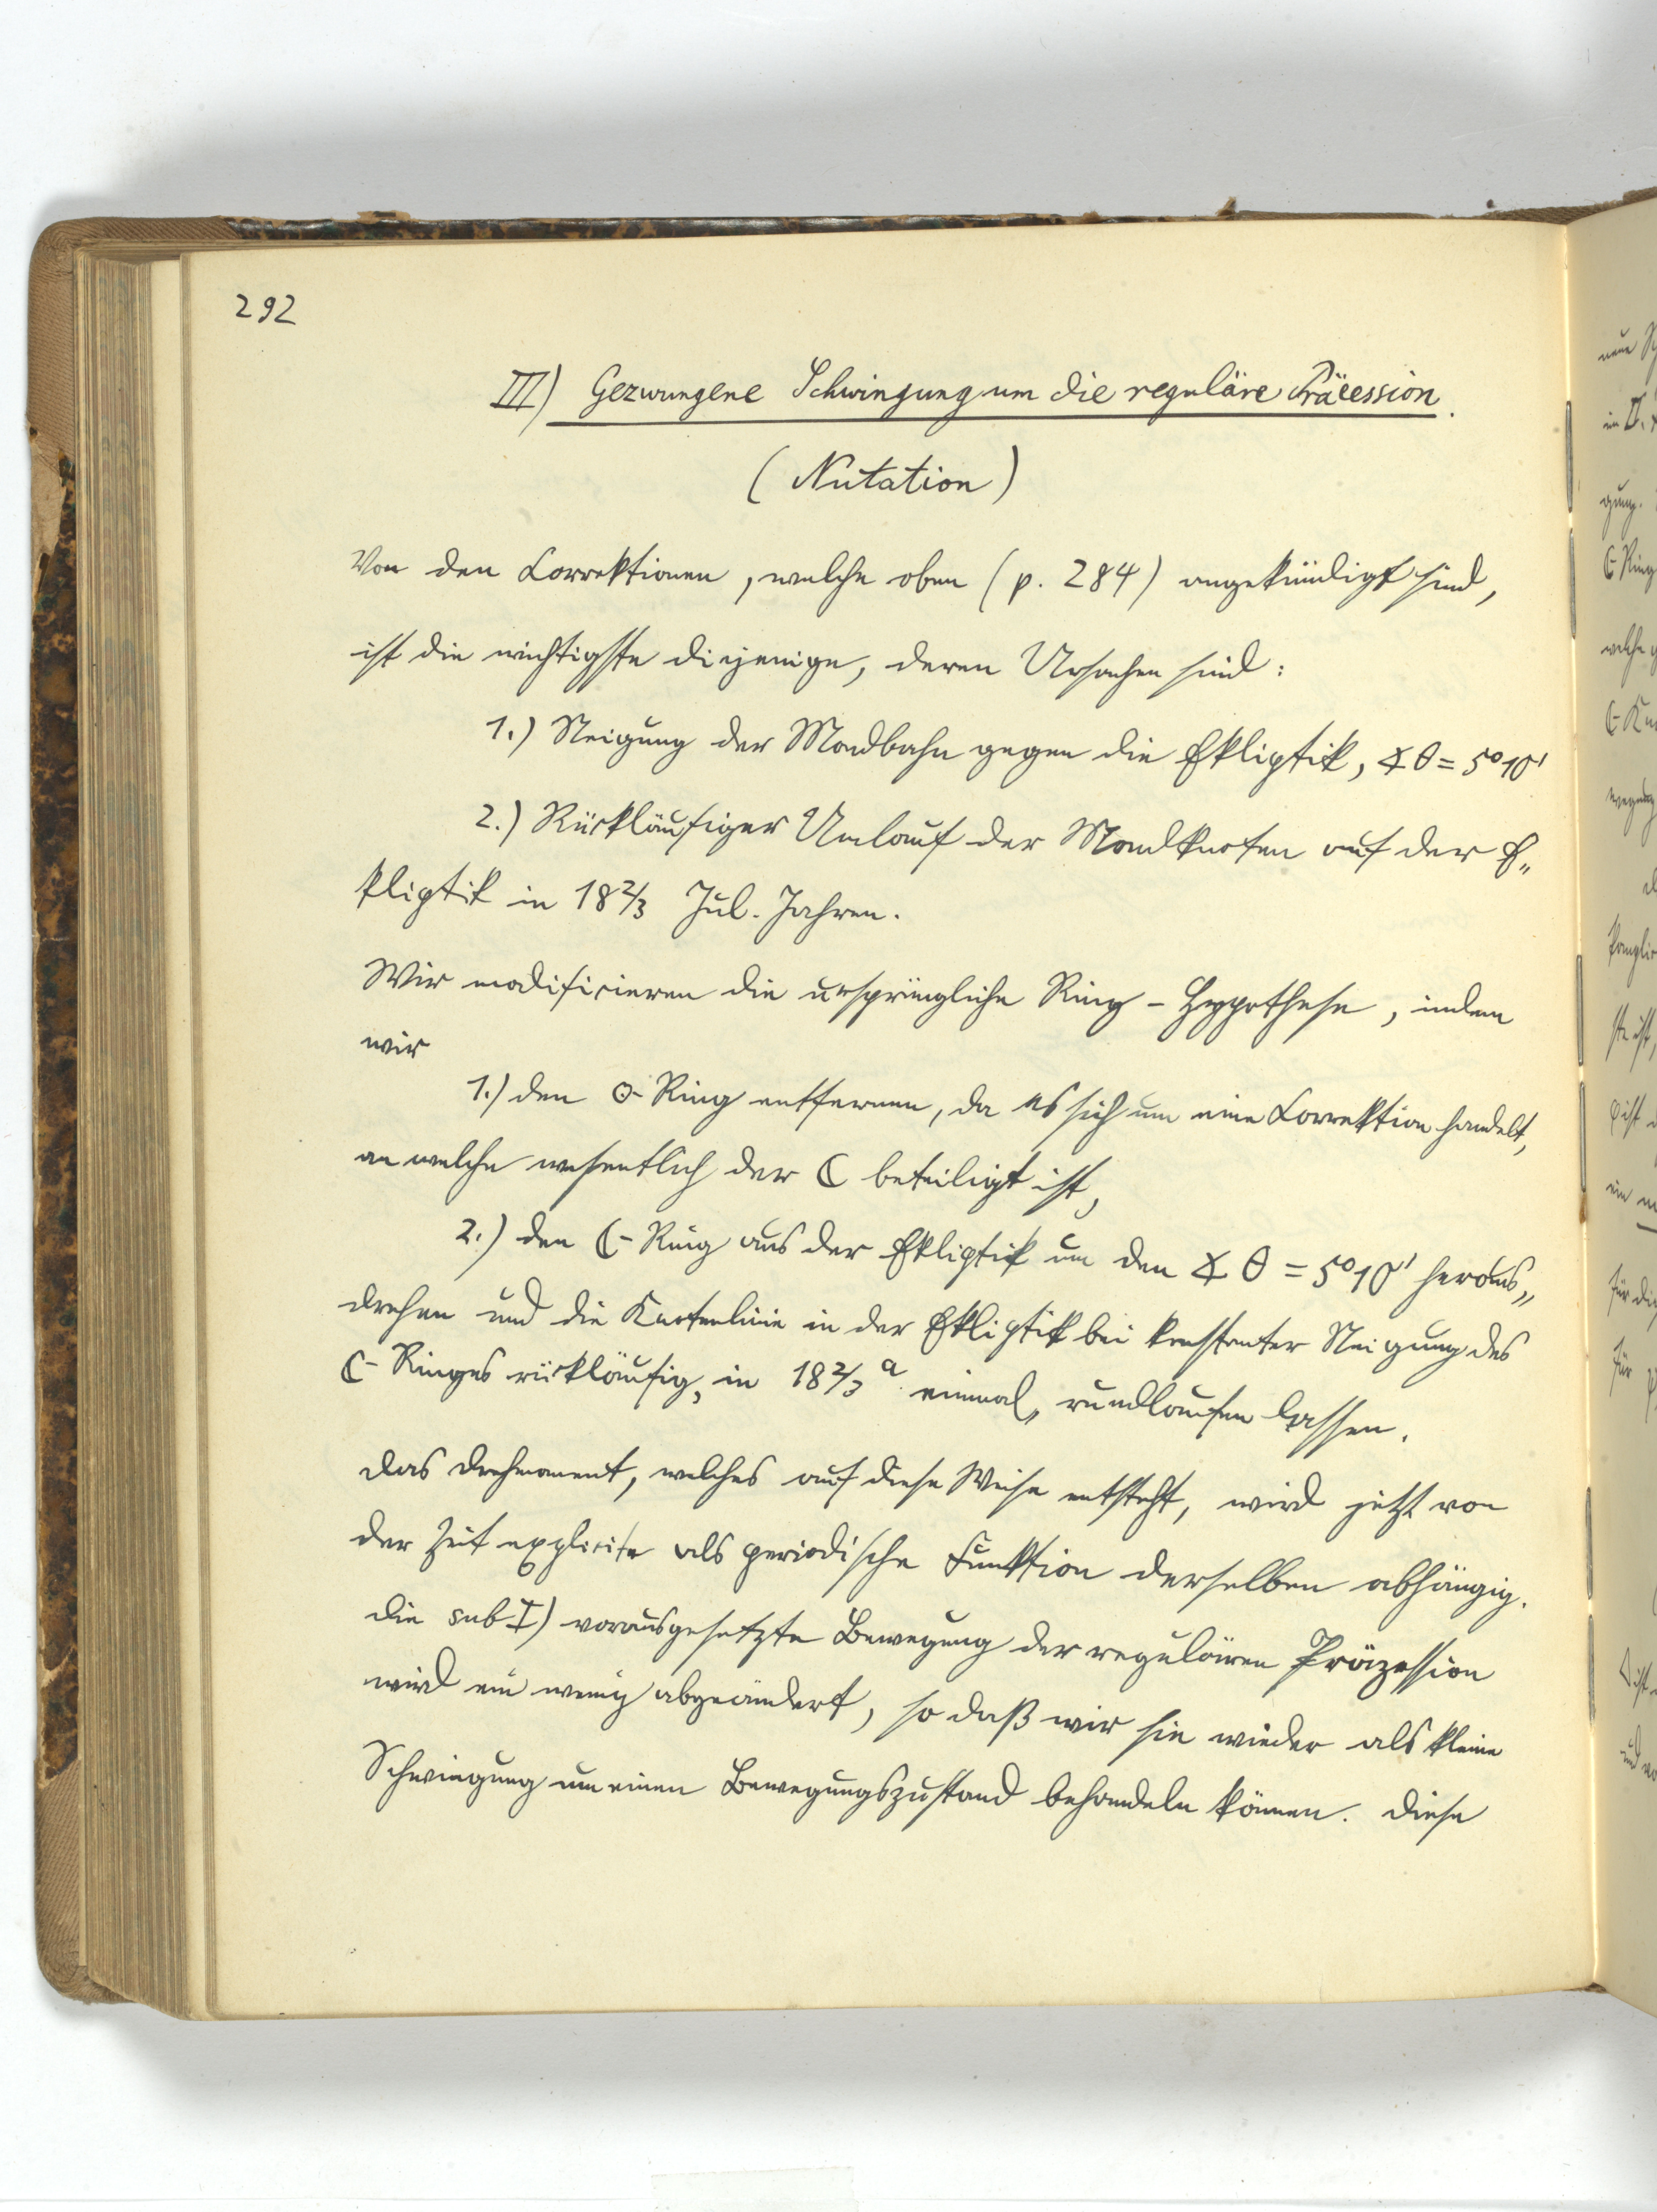 292
III) Gezwungene Schwingung um die reguläre Präcession.
(Nutation)
Von den Correktionen, welche oben (p. 284) angekündigt sind,
ist die wichtigste diejenige, deren Ursachen sind:
1.) Neigung der Mondbahn gegen die Ekliptik, ∢ θ = 5° 10'
2.) Rückläufiger Umlauf der Mondknoten auf der E„
kliptik in 18 2/3 Jul. Jahren.
Wir modificieren die ursprüngliche Ring-Hypothese, indem
wir
1.) den ☉-Ring entfernen, da es sich um eine Correktion handelt,
an welche wesentlich der ☾ beteiligt ist,
2.) den ☾-Ring aus der Ekliptik um den ∢ θ = 5° 10' heraus„
drehen und die Knotenlinie in der Ekliptik bei konstanter Neigung des
☾-Ringes rückläufig, in 18 2/3 a einmal, rundlaufen lassen.
Das Drehmoment, welches auf diese Weise entsteht, wird jetzt von
der Zeit explicite als periodische Funktion derselben abhängig.
Die sub I) vorausgesetzte Bewegung der regulären Präzession
wird ein wenig abgeändert, so daß wir sie wieder als kleine
Schwingung um einen Bewegungszustand behandeln können. Diese
neue
im II.
gung.
☾-Ring
welche
☾
ist
für
für
ist
und